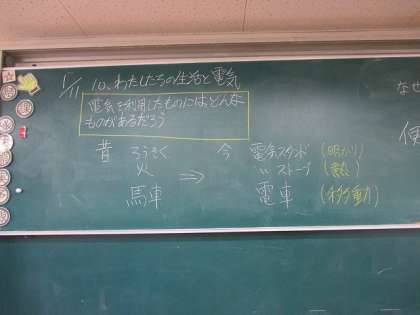 1/11 10、わたしたちの生活と電気
電気を利用したものにはどんな
ものがあるだろう
昔 ろうそく ⇒ 今 電気スタンド (明かり)
火 〃ストーブ (熱)
馬車 電車 (動力)
なぜ
便